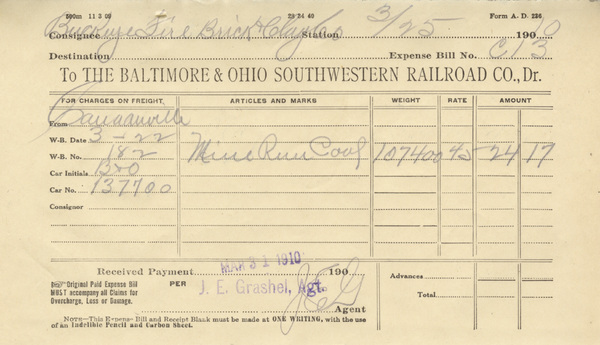 500m 11 3 09 23 24 40 Form A. D. 236
Consignee Buckeye Fire Brick & Clay Co Station 3/25 1900
Destination Expense Bill No. C13
To THE BALTIMORE & OHIO SOUTHWESTERN RAILROAD CO., Dr.
FOR CHARGES ON FREIGHT. ARTICLES AND MARKS WEIGHT RATE AMOUNT
From
W-B. Date 3-22
W-B. No. 182 Mine Run Coal 107400 45 24 17
Car Initials B&O
Car No. 137700
Consignor
Received Payment 190 Advances
MAR 31 1910
Original Paid Expense Bill PER
MUST accompany all Claims for J. E. Grashel, Agt.
Overcharge, Loss or Damage. JEG Total
Agent
NOTE—This Expense Bill and Receipt Blank must be made at ONE WRITING, with the use
of an Indelible Pencil and Carbon Sheet.